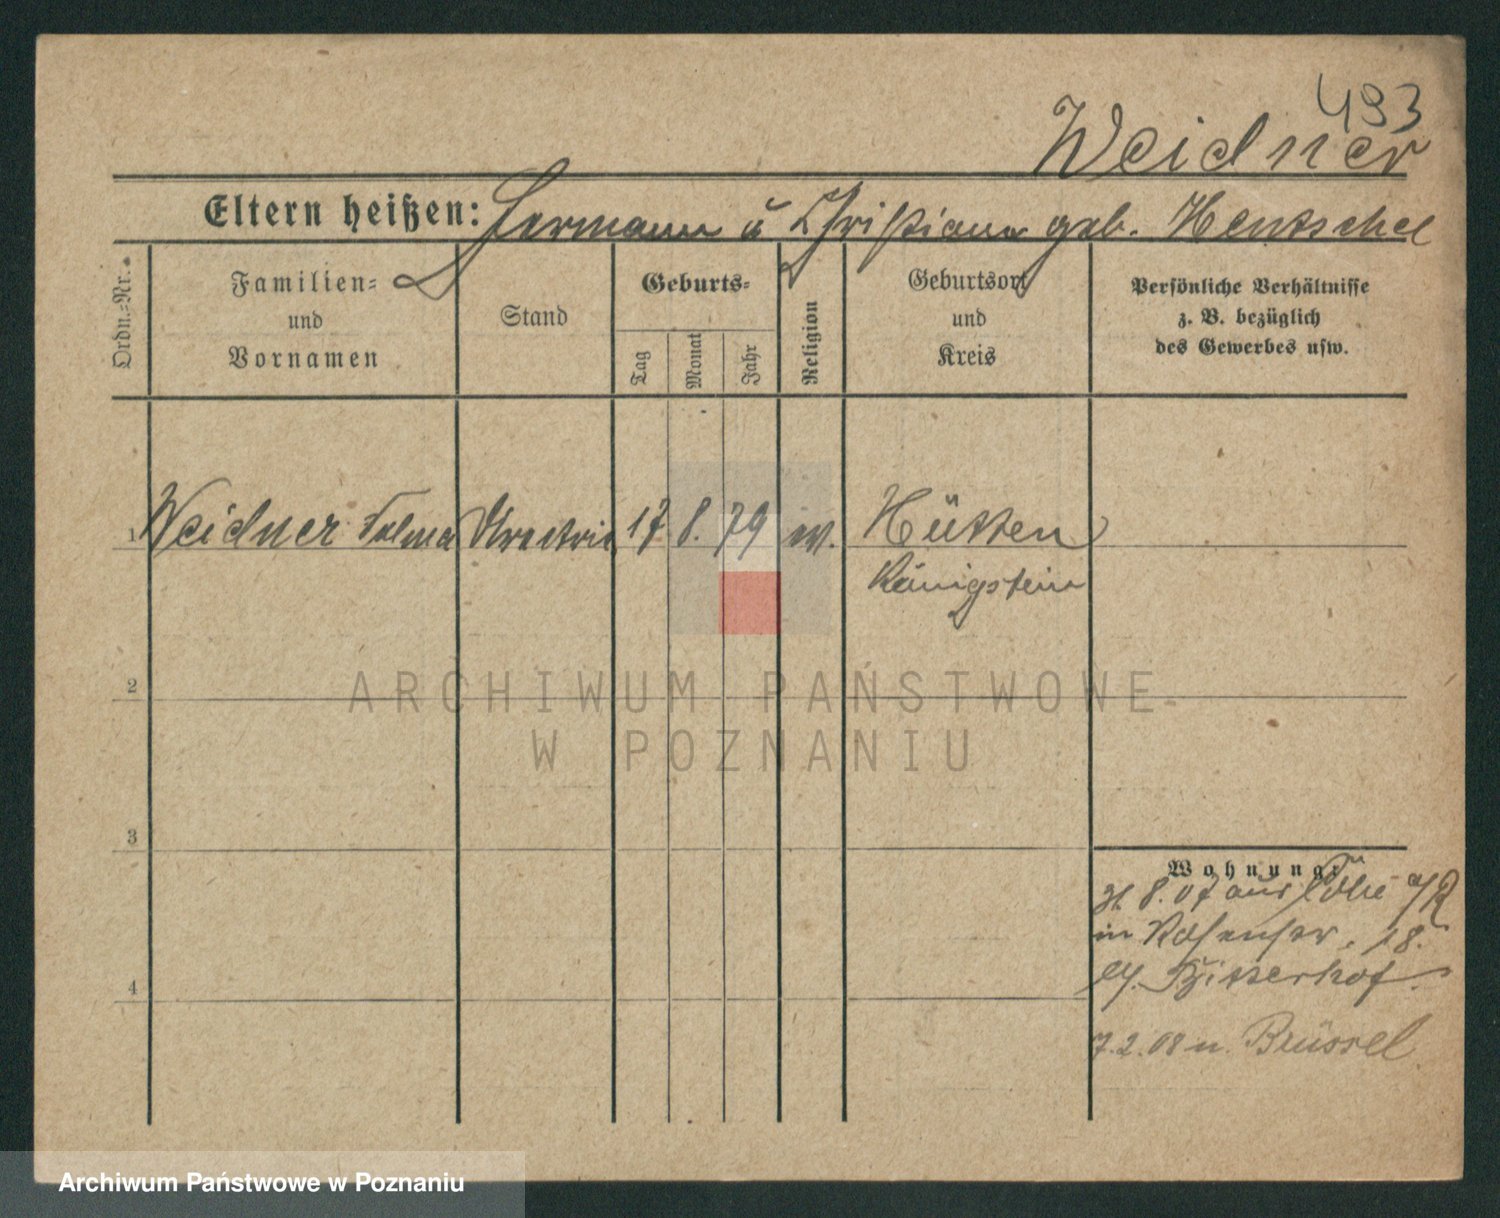 493
Weidner
Eltern heißen: Hermann u Christiana geb. Hentschel
Ordn.-Nr.
Familien-
und
Vornamen
Stand
Geburts-
Tag
Monat
Jahr
Religion
Geburtsort
und
Kreis
Persönliche Verhältnisse
z. B. bezüglich
des Gewerbes usw.
1 Weidner Selma Direktric 17 8. 79 ev. Hütten
Königstein
2
ARCHIWUM PAŃSTWOWE
W POZNANIU
3
Wohnung:
8. 07 aus
in 18.
bei Ritterhof
7.2.08 n. Brüssel
4
Archiwum Państwowe w Poznaniu